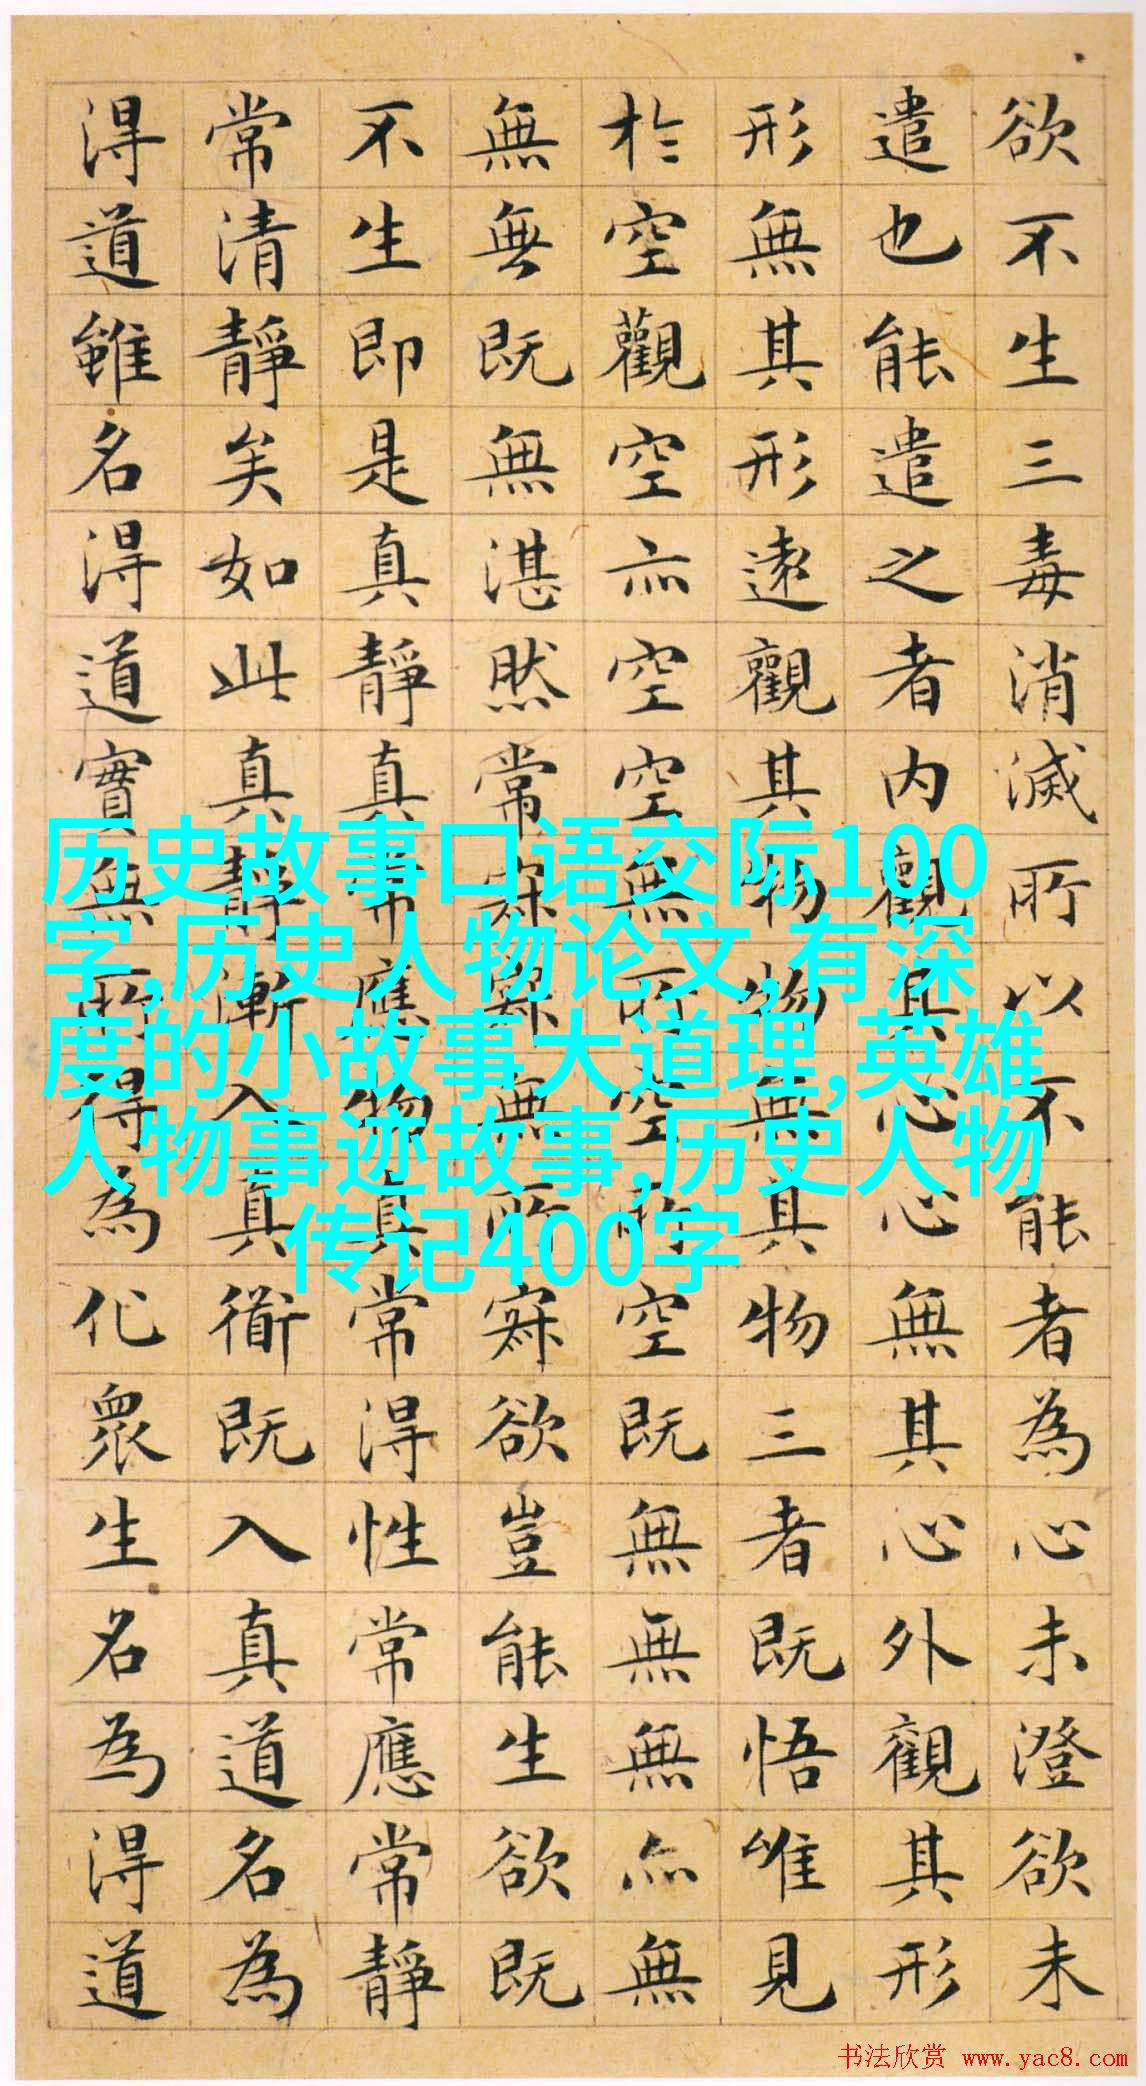 欲不生三毒消滅所以不能者為心未澄欲未
遣也能遣之者内觀其心心無其心外觀其形
形無其形遠觀其物物無其物三者既悟唯見
於空觀空亦空空無所空所空既無無無亦無
無無既無湛然常寂寂無所寂欲豈能生欲既
不生即是真靜真常應物真常得性常應常靜
常清靜矣如此真靜漸入真衜既入真道名為
得道雖名得道實無所得為化眾生名為得道
历史故事口语交际100
字,历史人物论文,有深
度的小故事大道理,英雄
人物事迹故事,历史人物
传记400字
书法欣赏 www.yac8.com